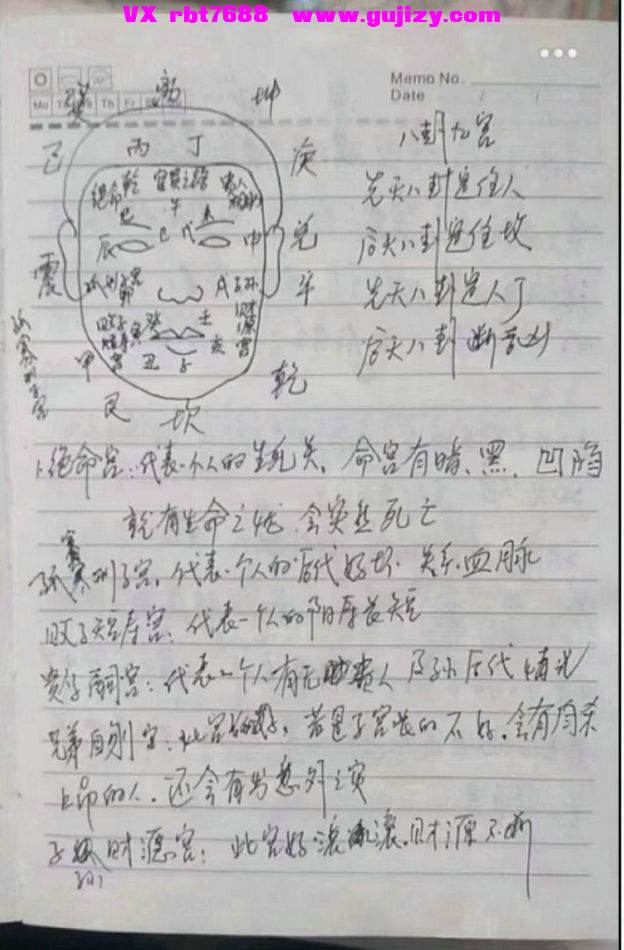 VX rbt7688 www.gujizy.com
Memo No.
Mo Th Fr
Date / /
巽 离 坤
八卦九宫
己 丙 丁 庚
绝命 乾 贵人
先天八卦定住人
巳 午
辰 申 兑
后天八卦定住坟
震 辛
先天八卦定人丁
后天八卦断
甲 丑 子 亥 乾
艮 坎
1.绝命宫:代表个人的生死关,命宫有暗、黑、凹陷
就有生命之忧 会突然死亡
孤寡刑子宫,代表一个人的后代好坏 关系血脉
败子短寿宫,代表一个人的阳寿长短
贵子嗣宫:代表一个人有无贵人 及孙后代情况
兄弟自刎宫:此宫 若是子宫长的不好,会有
上吊的人,还会有男意外之灾
子孙财源宫:此宫好滚滚,财源不断